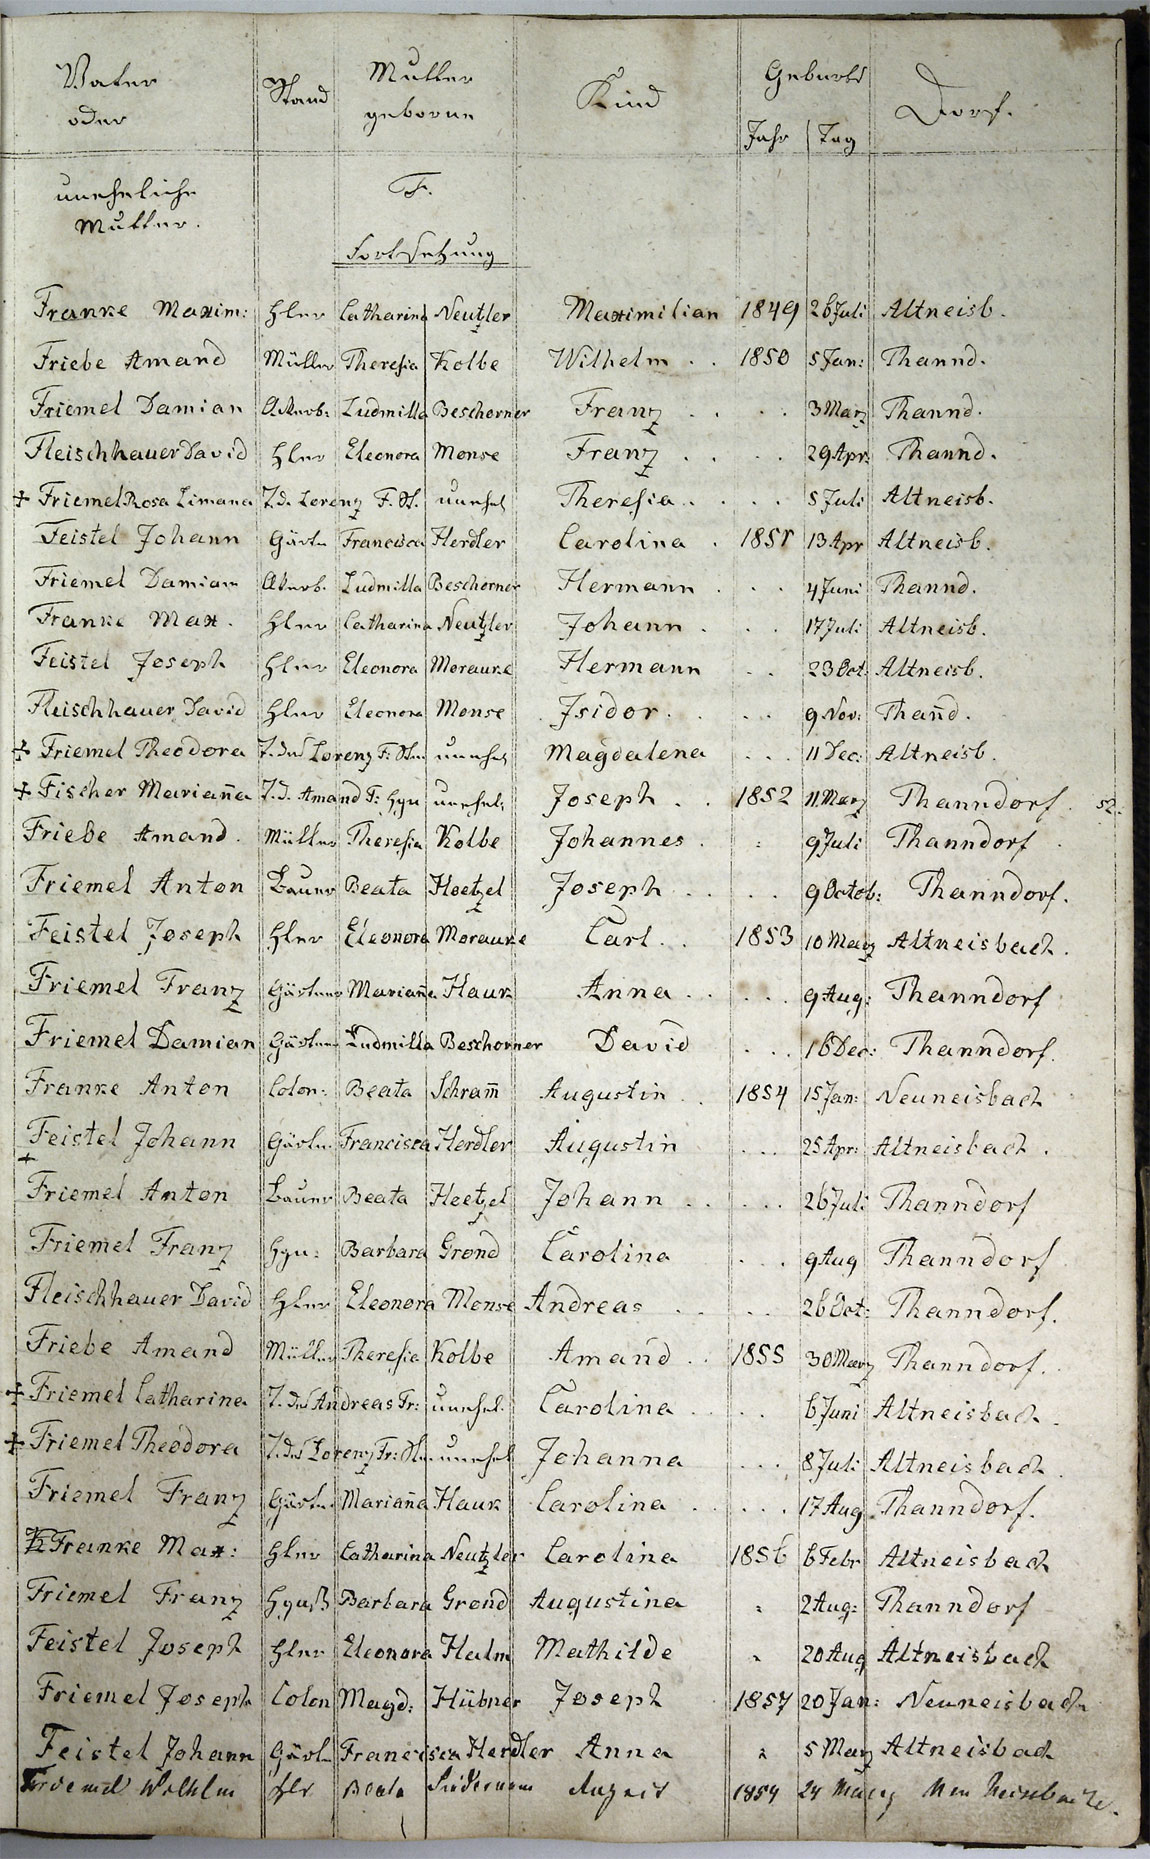 Vater Stand Mutter Kind Geburts Dorf.
oder geborne Jahr Tag
uneheliche F.
Mutter.
Fortsetzung
Franke Maxim: Hler Catharina Neutzler Maximilian 1849 26 Juli Altneisb.
Friebe Amand Müller Theresia Kolbe Wilhelm . . 1850 5 Jan: Thannd.
Friemel Damian Ackerb: Ludmilla Beschorner Franz . . . . 3 Marz Thannd.
Fleischhauer David Hler Eleonora Monse Franz . . . . 29 Apr: Thannd.
+ Friemel Rosa Limana T. d. Lorenz F. St. unehel Theresia . . . . 5 Juli Altneisb.
Feistel Johann Gärtn Francisca Herdler Carolina . 1851 13 Apr Altneisb.
Friemel Damian Ackerb. Ludmilla Beschorner Hermann . . . . 4 Juni Thannd.
Franke Max . Hler Catharina Neutzler Johann . . . 17 Juli Altneisb.
Feistel Joseph Hler Eleonora Morauke Hermann . . 23 Oct: Altneisb.
Fleischhauer David Hler Eleonora Monse Isidor . . . . 9 Nov: Than̄d.
+ Friemel Theodora T. des Lorenz F: unehel Magdalena . . . 11 Dec: Altneisb.
+ Fischer Marian̄a T. d. Amand F: Hgn unehel: Joseph . . 1852 11. Marz Thanndorf . 52.
Friebe Amand . Müller Theresia Kolbe Johannes . : 9 Juli Thanndorf .
Friemel Anton Bauer Beata Hoetzel Joseph . . . . 9 Octob: Thanndorf.
Feistel Joseph Hler Eleonora Morauke Carl . . 1853 10 Marz Altneisbach .
Friemel Franz Gärtner Marian̄a Hauk Anna . . . . . 9 Aug: Thanndorf
Friemel Damian Gärtner Ludmilla Beschorner David . . . 16 Dec: Thanndorf.
Franke Anton Colon: Beata Schram̄ Augustin . . 1854 15 Jan: Neuneisbach
+ Feistel Johann Gärtn. Francisca Herdler Augustin . . . 25 Apr: Altneisbach .
Friemel Anton Bauer Beata Hoetzel Johann . . . . . 26 Juli Thanndorf
Friemel Franz Hgn: Barbara Grond Carolina . . . 9 Aug Thanndorf
Fleischhauer David Hler Eleonora Monse Andreas . . . . 26 Oct: Thanndorf.
Friebe Amand Müller Theresia Kolbe Amand . . 1855 30 Marz Thanndorf.
+ Friemel Catharina T. des Andreas Fr: unehel. Carolina . . . . 6 Juni Altneisbach .
+ Friemel Theodora T. des Lorenz Fr: unehel Johanna . . . 8 Juli Altneisbach .
Friemel Franz Gärtn. Marian̄a Hauk Carolina . . . . 17 Aug Thanndorf.
Franke Max: Hler Catharina Neutzler Carolina 1856 6 Febr Altneisbach
Friemel Franz Barbara Grond Augustina " 2 Aug: Thanndorf
Feistel Joseph Hler Eleonora Halm Mathilde " 20 Aug Altneisbach
Friemel Joseph Colon Magd: Hübner Joseph 1857 20 Jan: Neuneisbach
Feistel Johann Gärtn Francisca Herdler Anna " 5 Marz Altneisbach
Friemel Wilhelm Hlr Beata August 24 Neu Neisbach.